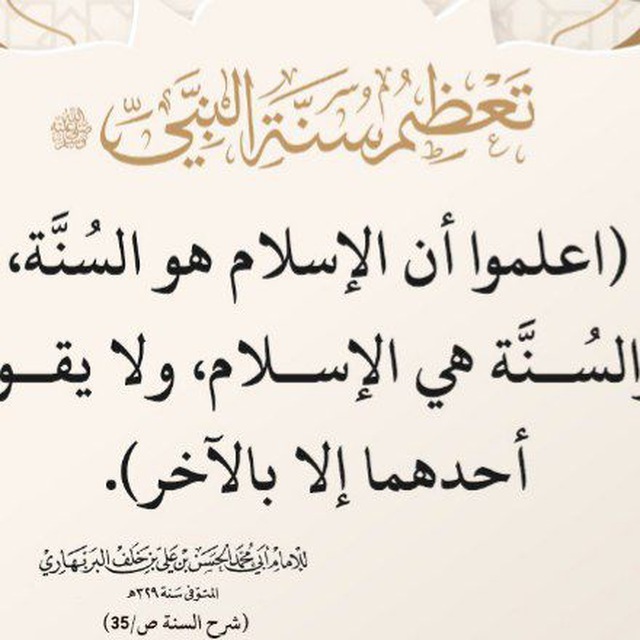 تَعْظِيمُ سُنَّةِ النَّبِيِّ ﷺ
(اعلموا أن الإسلام هو السُنَّة،
والسُنَّة هي الإسلام، ولا يقو
أحدهما إلا بالآخر).
للإمام أبي محمد الحسن بن علي بن خلف البربهاري
المتوفى سنة ٣٢٩هـ
(شرح السنة ص/35)